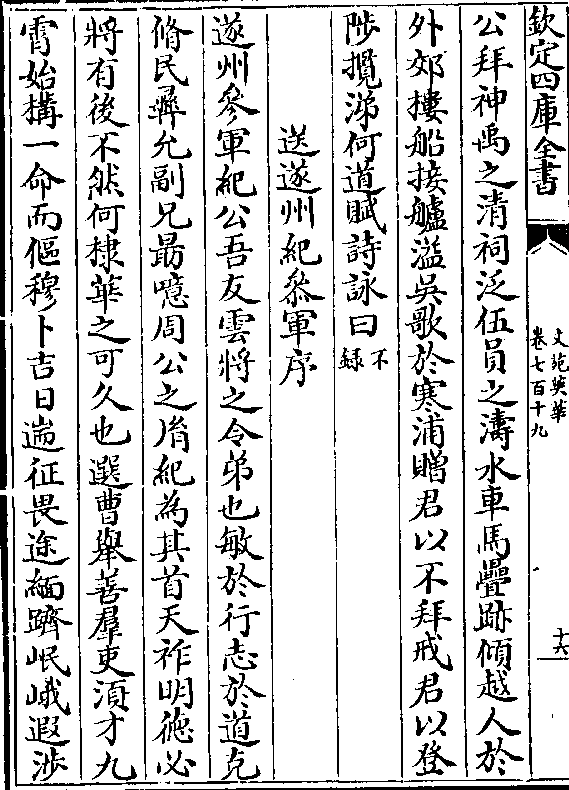 欽定四庫全書
文苑英華
卷七百十九
十六
公拜神禹之清祠泛伍員之濤水車馬疊跡傾越人於
外郊摟船接艫溢吳歌於寒浦贈君以不拜戒君以登
陟攬涕何道賦詩詠曰不
錄
送遂州紀叅軍序
遂州參軍紀公吾友雲將之令弟也敏於行志於道克
脩民彞允副兄最噫周公之胤紀為其首天祚明德必
將有後不然何棣華之可久也選曹舉善羣吏須才九
霄始搆一命而傴穆卜吉日遄征畏途緬躋岷峨遐涉